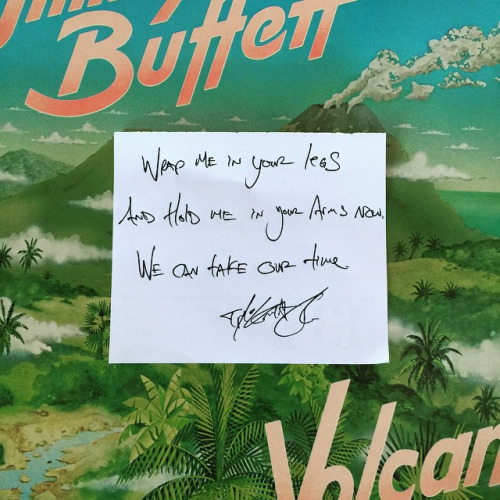 Jimmy
Buffett
Wrap me in your legs
And Hold me in your Arms now.
We can take our time.
Volcan